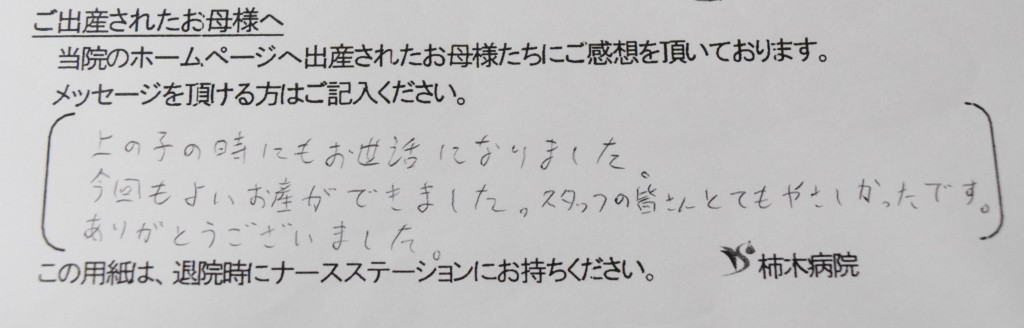 ご出産されたお母様へ
当院のホームページへ出産されたお母様たちにご感想を頂いております。
メッセージを頂ける方はご記入ください。
上の子の時にもお世話になりました。
今回もよいお産ができました。スタッフの皆さんとてもやさしかったです。
ありがとうございました。
この用紙は、退院時にナースステーションにお持ちください。
柿木病院